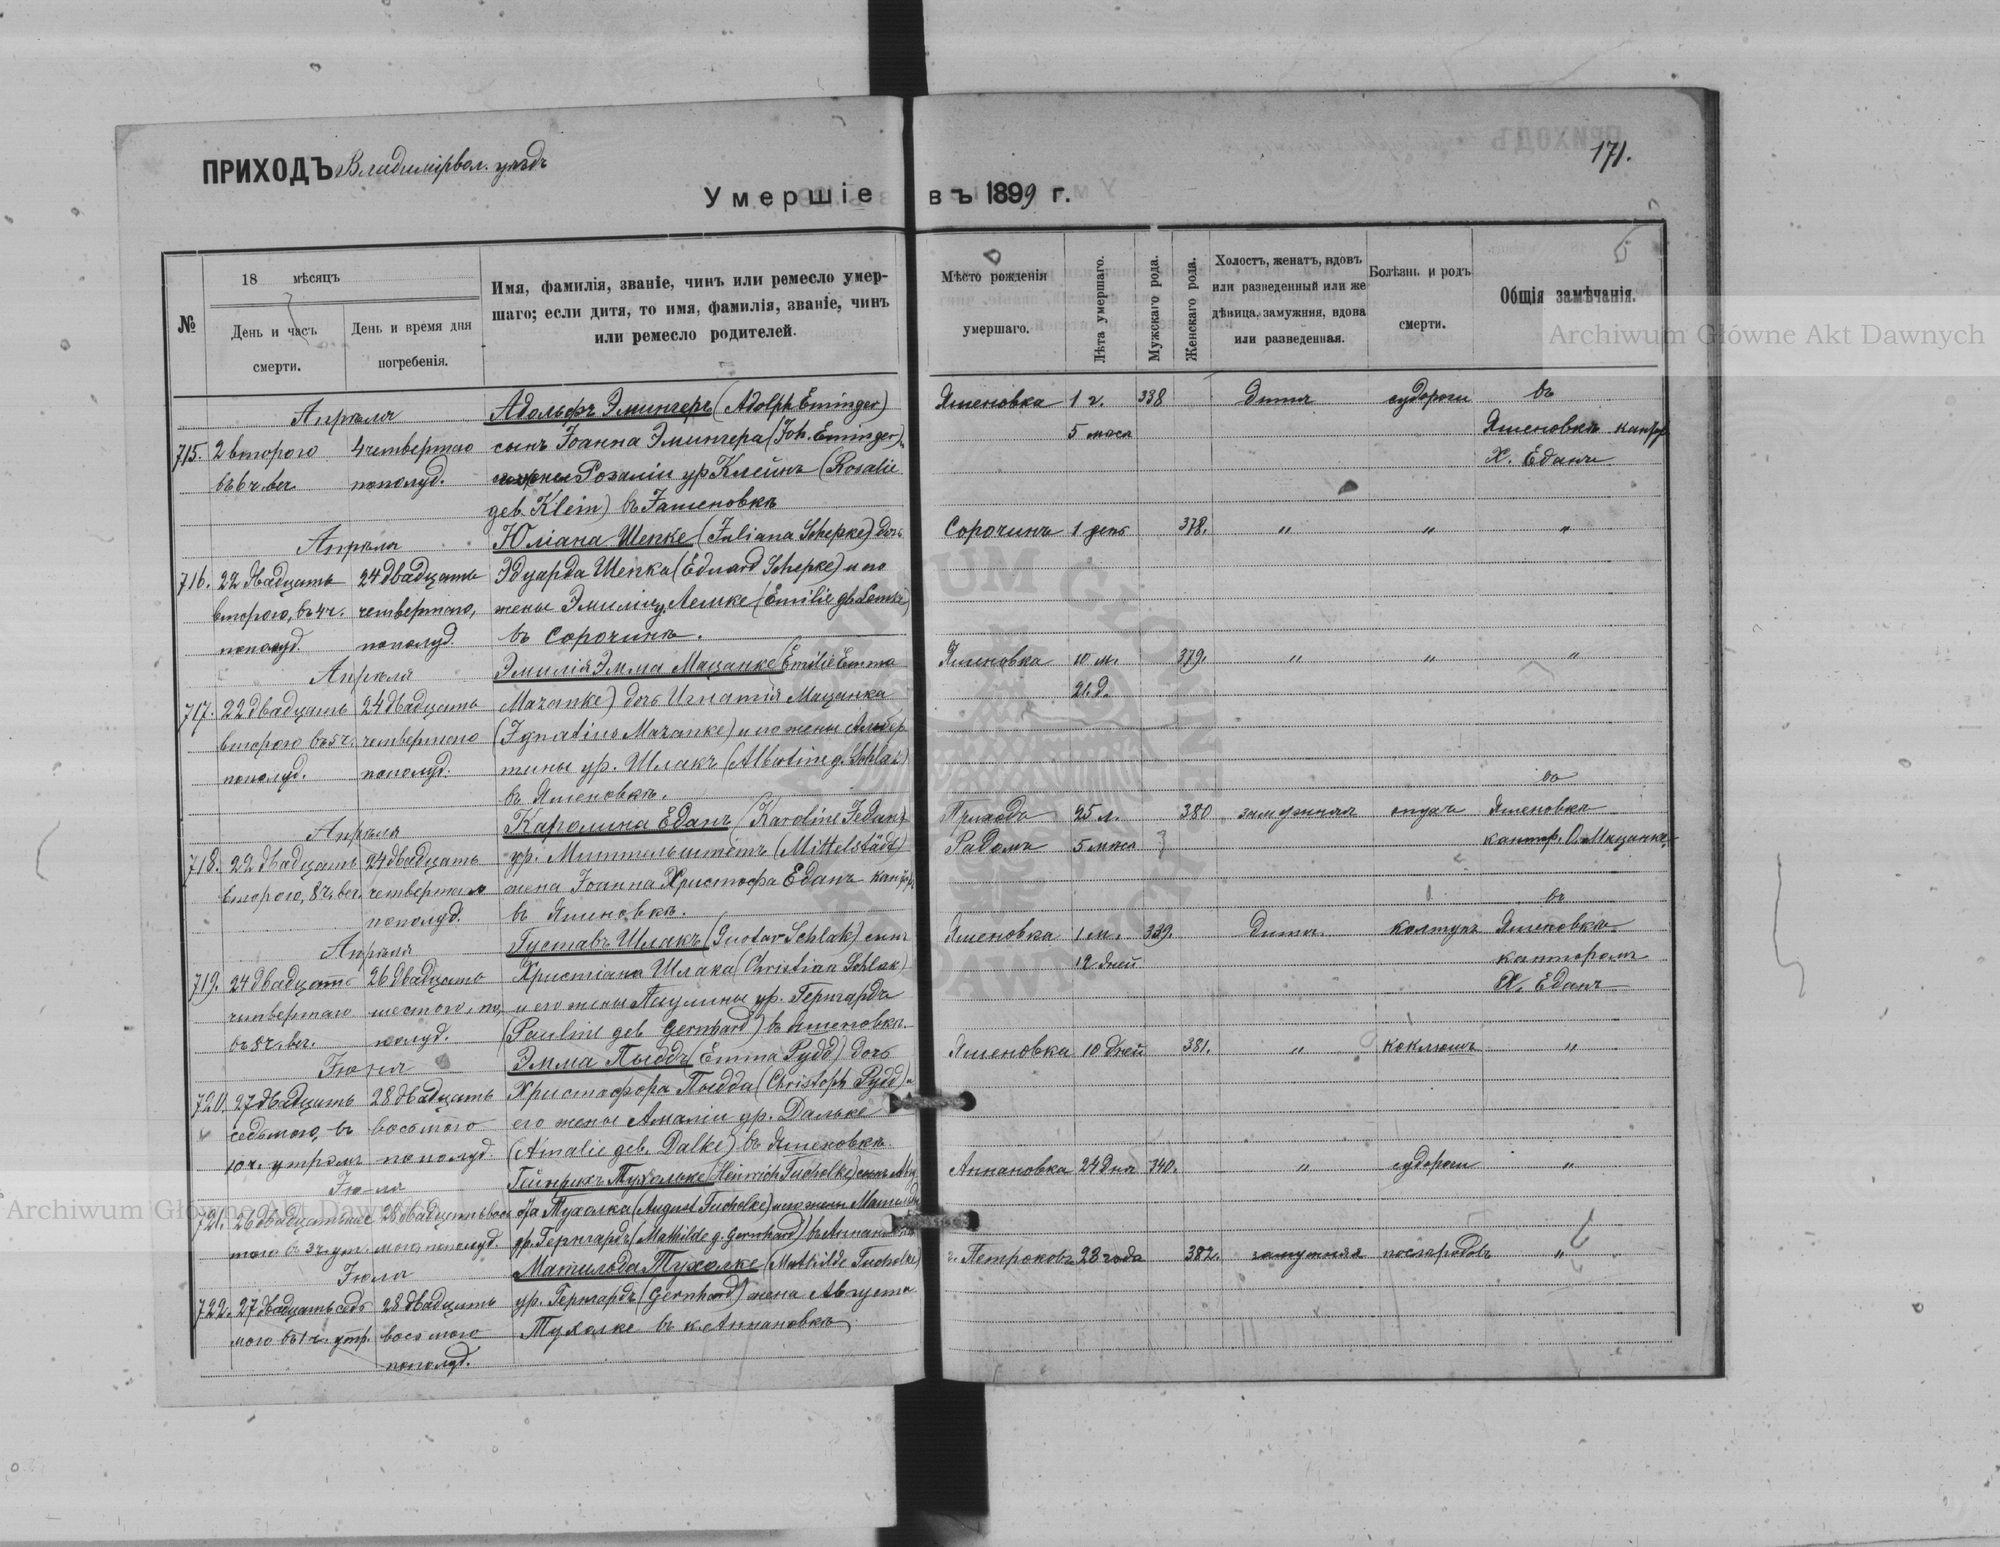 ПРИХОДЪ Владимірвол. уѣздъ
171.
Умершіе въ 1899 г.
№
18 мѣсяцъ
День и часъ смерти.
День и время дня погребенія.
Имя, фамилія, званіе, чинъ или ремесло умер-
шаго; если дитя, то имя, фамилія, званіе, чинъ
или ремесло родителей.
Мѣсто рожденія
умершаго.
Лѣта умершаго.
Мужскаго рода.
Женскаго рода.
Холостъ, женатъ, вдовъ
или разведенный или же
дѣвица, замужняя, вдова
или разведенная.
Болѣзнь и родъ
смерти.
Общія замѣчанія.
Archiwum Główne Akt Dawnych
Апрѣля Адольфъ Эмингеръ (Adolph Eminger) Яшеновка 1 г. 338 дитя судороги въ
715. 2 второго 4 четвертаго сынъ Іоанна Эмингера (Joh. Eminger) 5 мѣся Яшеновкѣ кантор
въ 6 ч. веч. пополуд. Розаліи ур. Клейнъ (Rosalie Х. Еданъ
geb. Klein) въ Яшеновкѣ
Апрѣля Юліана Шепке (Juliana Schepke) дочь Сорочинъ 1 день 378. " " "
716. 22 двадцать 24 двадцать Эдуарда Шепка (Eduard Schepke) и его
второго, въ 4 ч. четвертаго, жены Эмиліи Лемке (Emilie geb. Lemke)
пополуд. пополуд. въ Сорочинѣ.
Апрѣля Эмилія Эмма Мацанке (Emilie Emma Яшеновка 10 м. 379. " " "
21 д.
717. 22 двадцать 24 двадцать Mazanke) дочь Игнатія Мацанка
второго въ 5 ч. четвертаго (Ignatius Mazanke) и его жены Альбер
пополуд. пополуд. тины ур. Шлакъ (Albertine g. Schlak)
въ Яшеновкѣ.
въ
Апрѣля Каролина Еданъ (Karoline Jedan) Прихода 25 л. 380 замужняя Яшеновкѣ
718. 22 двадцать 24 двадцать ур. Миттельштетъ (Mittelstädt) Радомъ 5 мѣся кантор. Мацанке
второго, 8 ч. веч. четвертаго жена Іоанна Христофа Еданъ кантор
пополуд. въ Яшеновкѣ.
въ
Апрѣля Густавъ Шлакъ (Gustav Schlak) сынъ Яшеновка 1 м. 339. дитя колтунъ Яшеновкѣ
719. 24 двадцать 26 двадцать Христіана Шлака (Christian Schlak) 12 дней канторомъ
четвертаго шестого, по и его жены Паулины ур. Гернгардъ Х. Еданъ
въ 8 ч. веч. полуд. (Pauline geb. Gernhard) въ Яшеновкѣ.
Іюня Эмма Пыддъ (Emma Pydd) дочь Яшеновка 10 дней 381. " коклюшъ "
720. 27 двадцать 28 двадцать Христофора Пыдда (Christoph Pydd) и
седьмого, въ восьмого его жены Амаліи ур. Дальке
10 ч. утромъ пополуд. (Amalie geb. Dalke) въ Яшеновкѣ.
Іюля Гейнрихъ Тухольке (Heinrich Tucholke) сынъ Авгу Аннановка 24 дня 340. " судороги "
Archiwum Główne Akt Dawnych
721. 26 двадцать шес 28 двадцать вось Тухолка (August Tucholke) и его жены Матильды
того въ 3 ч. ут. мого пополуд. ур. Гернгардъ (Mathilde g. Gernhard) въ Аннановкѣ
Іюля Матильда Тухолке (Mathilde Tucholke) г. Петроковъ 23 года 382. замужняя послѣ родовъ "
722. 27 двадцать седь 28 двадцать ур. Гернгардъ (Gernhard) жена Августа
мого въ 1 ч. утр. восьмого Тухолке въ к. Аннановкѣ.
пополуд.